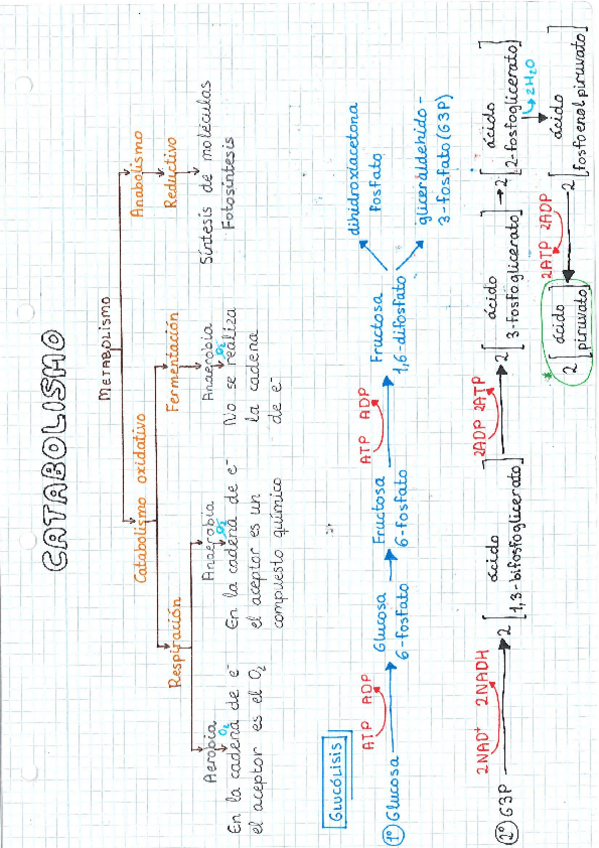 CATABOLISMO
METABOLISMO
Catabolismo oxidativo
Anabolismo
Respiración
Fermentación
Reductivo
Aerobia
O₂
En la cadena de e⁻
el aceptor es el O₂
Anaerobia
O₂
En la cadena de e⁻
el aceptor es un
compuesto químico
Anaerobia
O₂
No se realiza
la cadena
de e⁻
Síntesis de moléculas
Fotosíntesis
GLUCÓLISIS
1º Glucosa
ATP ADP
Glucosa
6-fosfato
Fructosa
6-fosfato
ATP ADP
Fructosa
1,6-difosfato
dihidroxiacetona
fosfato
gliceraldehido-
3-fosfato (G3P)
2º G3P
2NAD⁺ 2NADH
2 [ácido
1,3-bifosfoglicerato]
2ADP 2ATP
2 [ácido
3-fosfoglicerato]
2 [ácido
2-fosfoglicerato]
2H₂O
2 [ácido
fosfoenolpiruvato]
2ATP 2ADP
* 2 [ácido
piruvato]